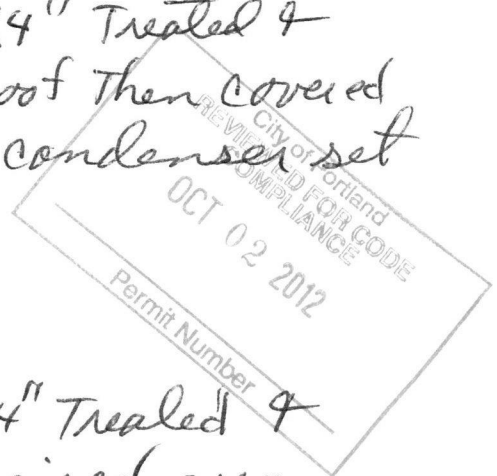 4" Treated &
oof Then covered
condenser set
City of Portland
REVIEWED FOR CODE
COMPLIANCE
OCT 02 2012
Permit Number
4" Treated &